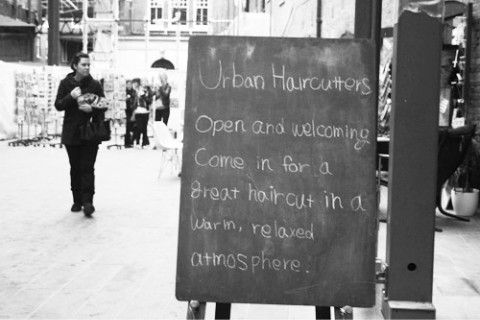 Urban Haircutters
Open and welcoming
Come in for a
great haircut in a
warm, relaxed
atmosphere.